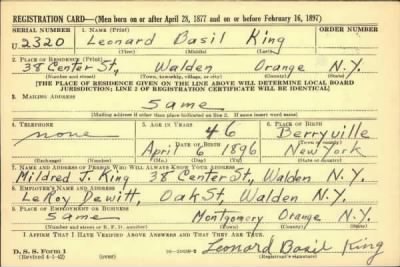 REGISTRATION CARD—(Men born on or after April 28, 1877 and on or before February 16, 1897)
SERIAL NUMBER 1. NAME (Print)
U 2320 Leonard Basil King
(First) (Middle) (Last)
2. PLACE OF RESIDENCE (Print)
38 Center St., Walden Orange N.Y.
(Number and street) (Town, township, village, or city) (County) (State)
[THE PLACE OF RESIDENCE GIVEN ON THE LINE ABOVE WILL DETERMINE LOCAL BOARD
JURISDICTION; LINE 2 OF REGISTRATION CERTIFICATE WILL BE IDENTICAL]
3. MAILING ADDRESS
Same
[Mailing address if other than place indicated on line 2. If same insert word same]
4. TELEPHONE 5. AGE IN YEARS 6. PLACE OF BIRTH
none 46 Berryville
DATE OF BIRTH (Town or county)
April 6 1896 New York
(Exchange) (Number) (Mo.) (Day) (Yr.) (State or country)
7. NAME AND ADDRESS OF PERSON WHO WILL ALWAYS KNOW YOUR ADDRESS
Mildred J. King 38 Center St., Walden N.Y.
8. EMPLOYER'S NAME AND ADDRESS
LeRoy Dewitt, Oak St, Walden N.Y.
9. PLACE OF EMPLOYMENT OR BUSINESS
Same Montgomery Orange N.Y.
(Number and street or R. F. D. number) (Town) (County) (State)
I AFFIRM THAT I HAVE VERIFIED ABOVE ANSWERS AND THAT THEY ARE TRUE.
D. S. S. Form 1
(Revised 4-1-42) (over) Leonard Basil King
(Registrant's signature)